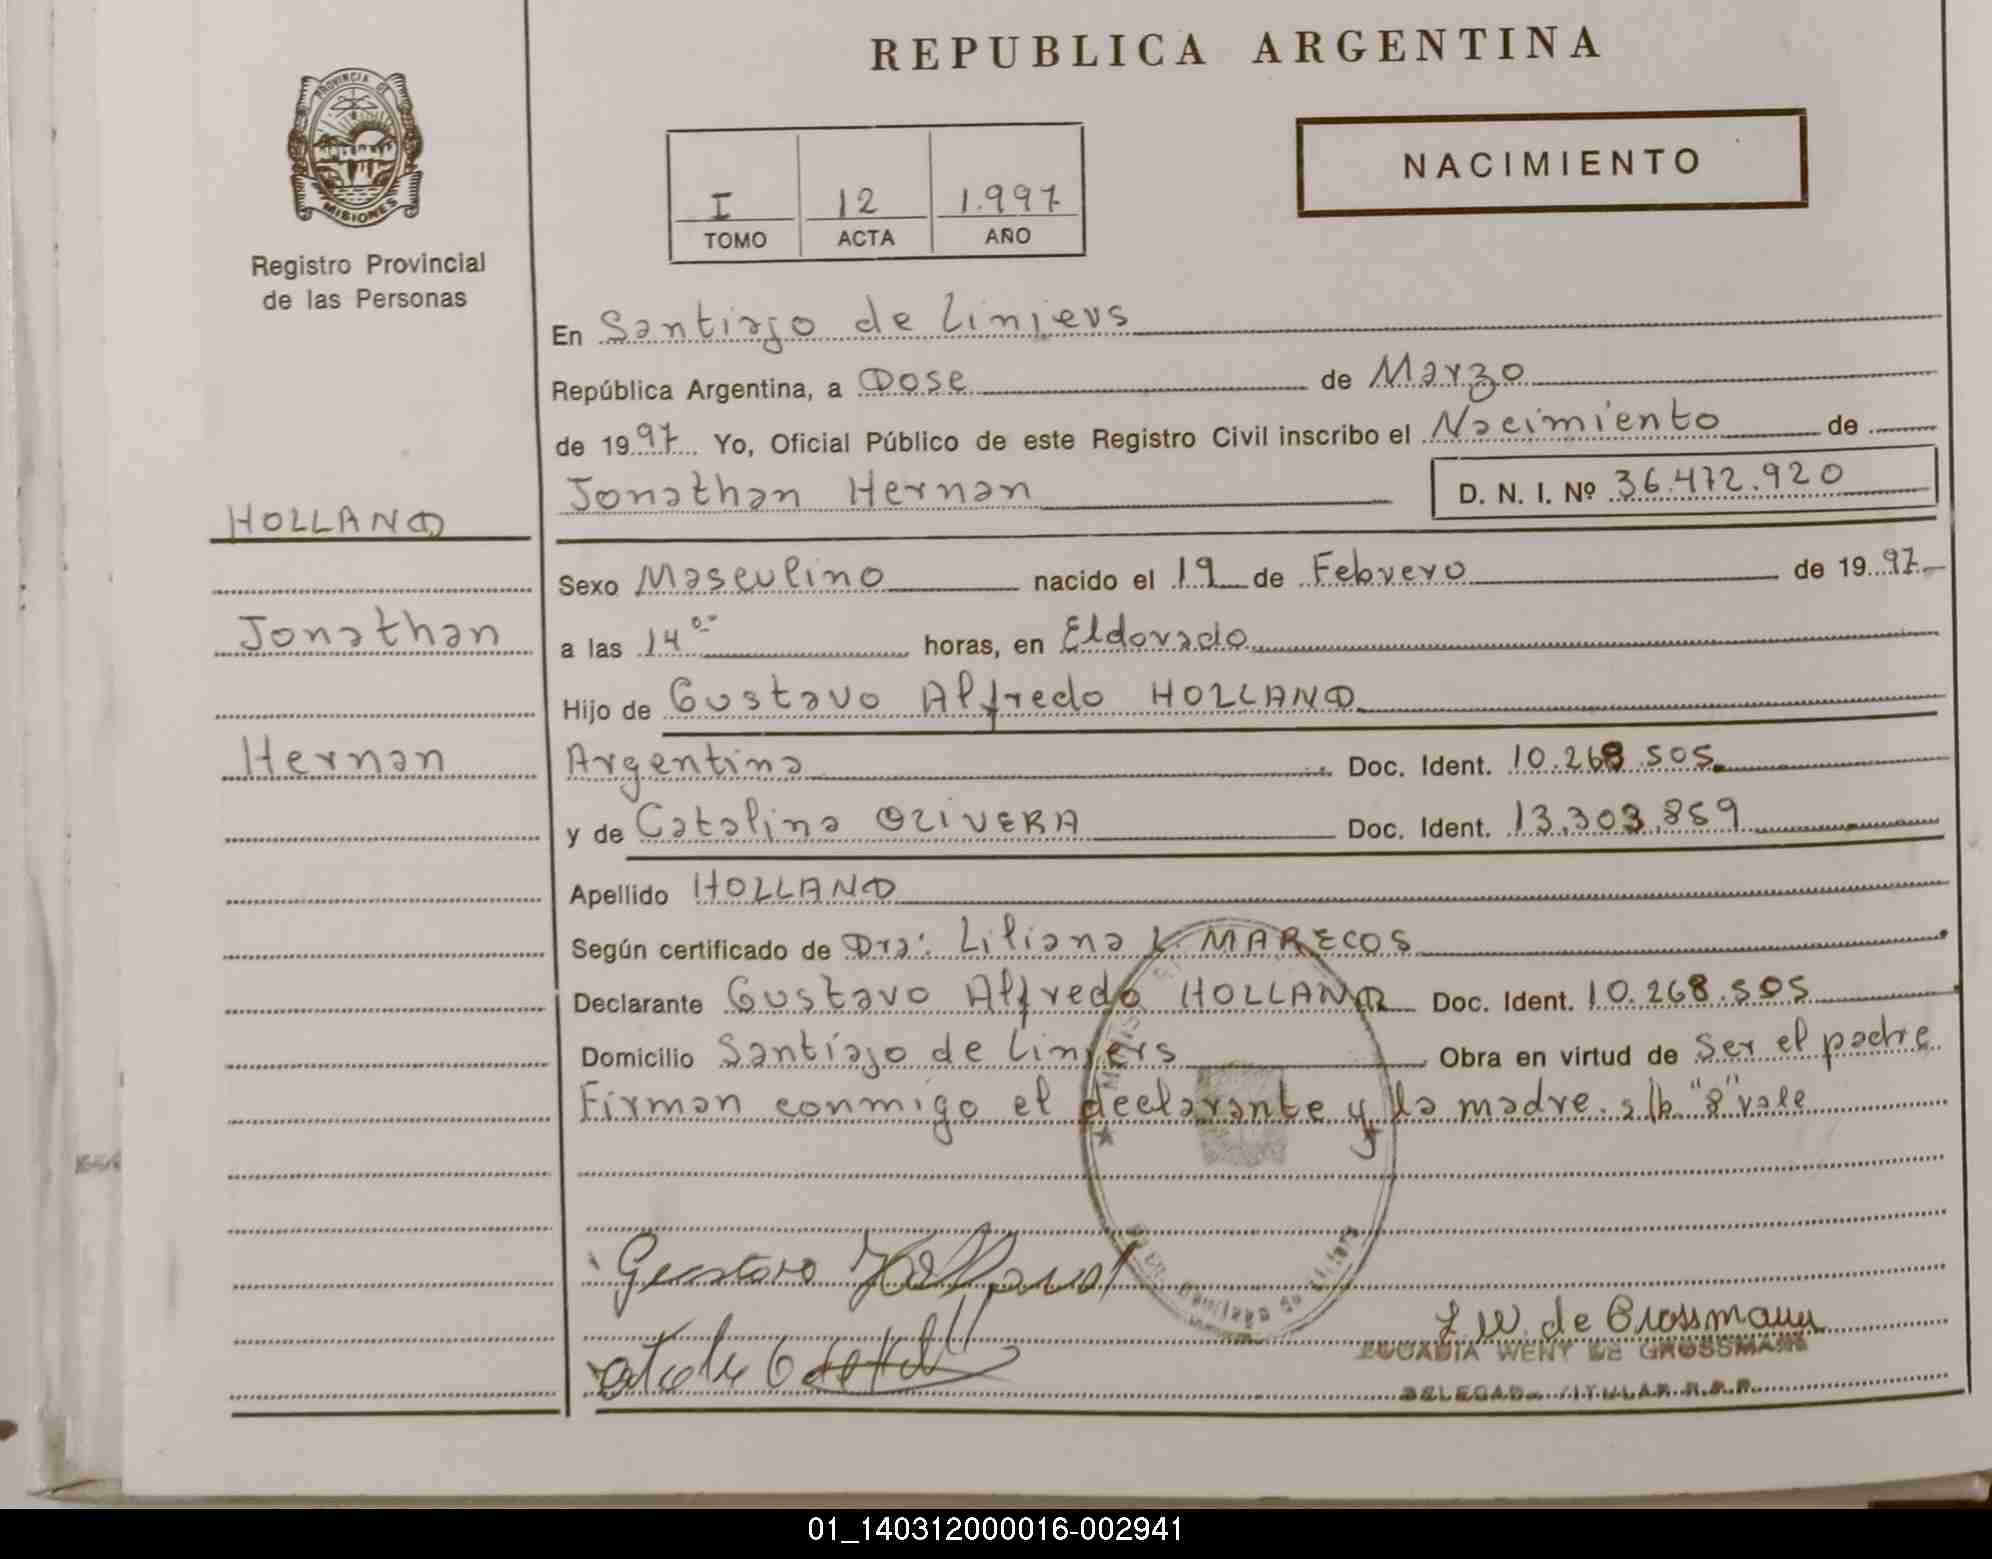 REPUBLICA ARGENTINA
PROVINCIA DE
MISIONES
Registro Provincial
de las Personas
NACIMIENTO
I 12 1.997
TOMO ACTA AÑO
En Santiago de Liniers
República Argentina, a Dose de Marzo
de 1997 Yo, Oficial Público de este Registro Civil inscribo el Nacimiento de
Jonathan Hernan D. N. I. Nº 36.472.920
HOLLAND
Jonathan
Hernan
Sexo Masculino nacido el 19 de Febrero de 1997
a las 14 00 horas, en Eldorado
Hijo de Gustavo Alfredo HOLLAND
Argentina Doc. Ident. 10.268.505
y de Catalina OLIVERA Doc. Ident. 13.303.859
Apellido HOLLAND
Según certificado de Dra: Liliana L. MARECOS
Declarante Gustavo Alfredo HOLLAND Doc. Ident. 10.268.505
Domicilio Santiago de Liniers Obra en virtud de Ser el padre
Firman conmigo el declarante y la madre. s/b "8" vale
Gustavo Holland
Santiago de
L.W. de Grossmann
WENY DE GROSSMANN
DELEGADA TITULAR R.P.P.
01_140312000016-002941